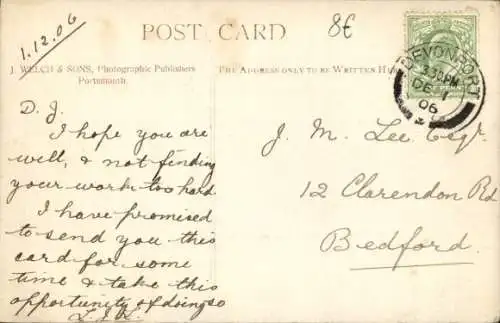 1.12.06
POST CARD
8€
J. WELCH & SONS, Photographic Publishers
Portsmouth.
THE ADDRESS ONLY TO BE WRITTEN
DEVONPORT
3.30PM
DE 1
06
D. J.
I hope you are
well, & not finding
your work too hard
I have promised
to send you this
card for some
time & take this
opportunity of doing so
J. M. Lee Esqr.
12 Clarendon Rd
Bedford.